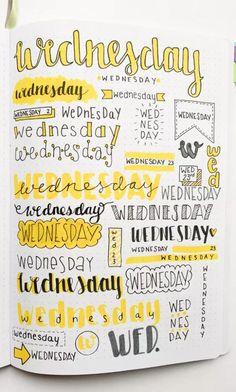 wednesday
WEDNESDAY
wednesday
wednesday
WEDNESDAY 2
WEDNESDAY
WED
NES
DAY
WEDNESDAY
wednesday
wednesday
WEDNESDAY 23
WED
23rd
wed
wednesday
WEDNESDAY
wednesday
WEDNESDAY
WEDNESDAY
wed
23
WEDNESDAY
WEDNESDAY 23
WEDNESDAY
WEDNESDAY
WEDNESDAY
Wednesday
wednesday
WED
NES
DAY
wednesday
W
WED.
WEDNESDAY